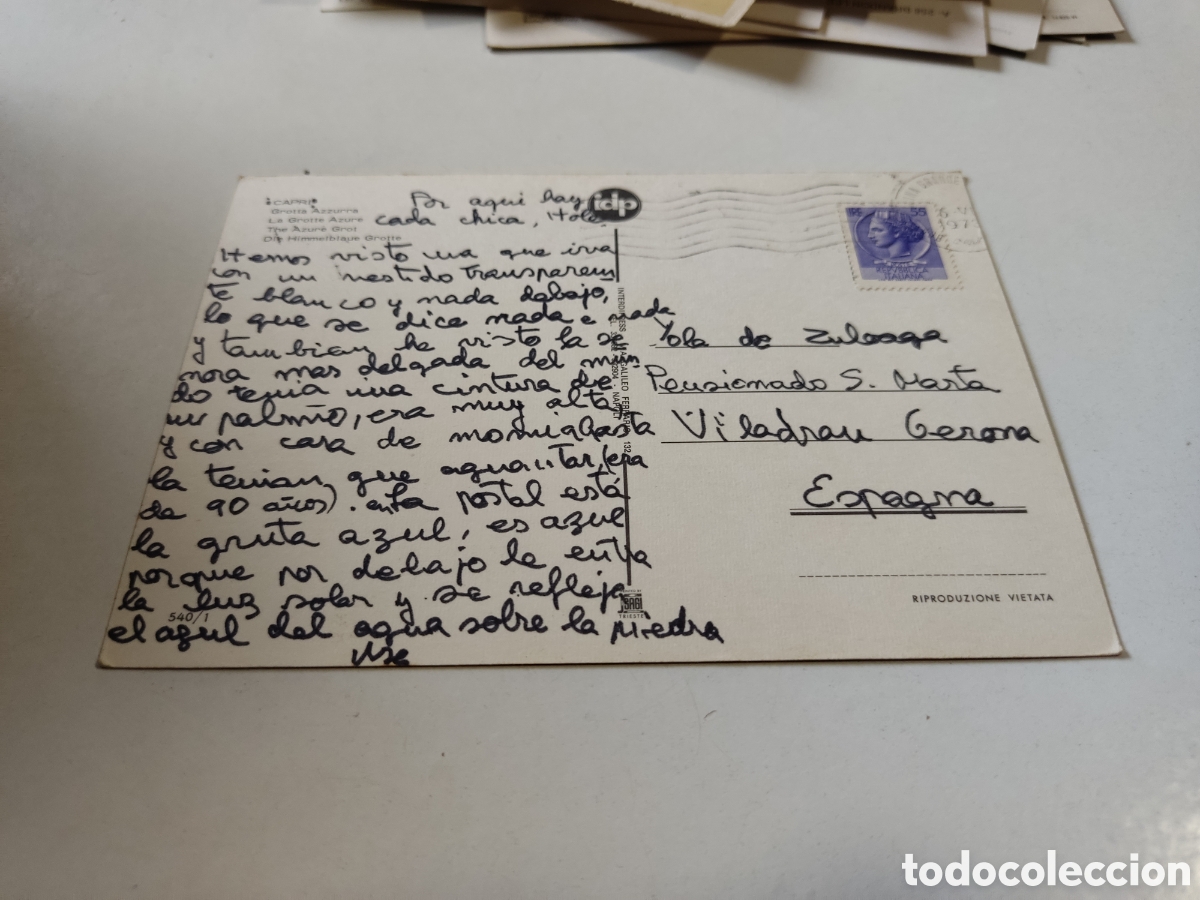 CAPRI
Grotta Azzurra
La Grotte Azure
The Azure Grot
Die Himmelblaue Grotte
idp
Por aqui hay
cada chica, Hola
Hemos visto una que iva
con un vestido transparen
te blanco y nada debajo,
lo que se dice nada e nada
y tambien he visto la se
ñora mas delgada del mun
do tenia una cintura de
un palmo, era muy alta
y con cara de momia hasta
la tenian que aguantar, (era
de 90 años). enta postal está
la gruta azul, es azul
porque por debajo le entra
la luz solar y se refleja
el azul del agua sobre la piedra
540/1
GALILEO FERRARIS, 132
SAGI
TRIESTE
55 55
REPUBBLICA
ITALIANA
Yola de Zuloaga
Pensionado S. Marta
Viladrau Gerona
Espagna
RIPRODUZIONE VIETATA
todocoleccion